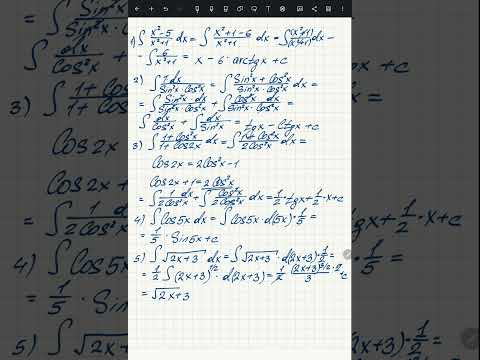 1) ∫ x²-5/x²+1 dx = ∫ x²+1-6/x²+1 dx = ∫ (x²+1)/(x²+1) dx -
- ∫ 6/x²+1 = x - 6 · arctgx + c
2) ∫ 1dx/Sin²x·Cos²x = ∫ Sin²x + Cos²x/Sin²x · Cos²x =
= ∫ Sin²x · dx/Sin²x · Cos²x + ∫ Cos²x · dx/Sin²x · Cos²x =
∫ dx/Cos²x + ∫ dx/Sin²x = tgx - Ctgx + c
3) ∫ 1+Cos²x/1+Cos2x dx = ∫ 1+Cos²x/2Cos²x dx =
Cos2x = 2Cos²x-1
Cos2x+1 = 2Cos²x
= ∫ 1 dx/2Cos²x + ∫ Cos²x/2Cos²x dx = 1/2 · tgx + 1/2 · x + c
4) ∫ Cos5x dx = ∫ Cos5x · d(5x) · 1/5 =
= 1/5 · Sin5x + c
5) ∫ √2x+3 dx = ∫ √2x+3 · d(2x+3) · 1/2 =
= 1/2 ∫ (2x+3)^1/2 · d(2x+3) = 1/2 · (2x+3)^3/2 · 2/3 + c
= √2x+3